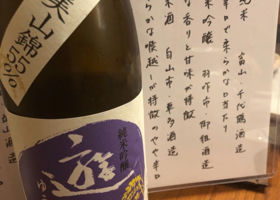 美山錦55%
純米吟醸
遊
ゆう
純米 富山・千代鶴酒造
辛口で柔らかな口当たり
米吟醸 羽咋市・御祖酒造
な香りと甘味が特徴
米酒 白山市・車多酒造
らかな喉越しが特徴のやや辛口